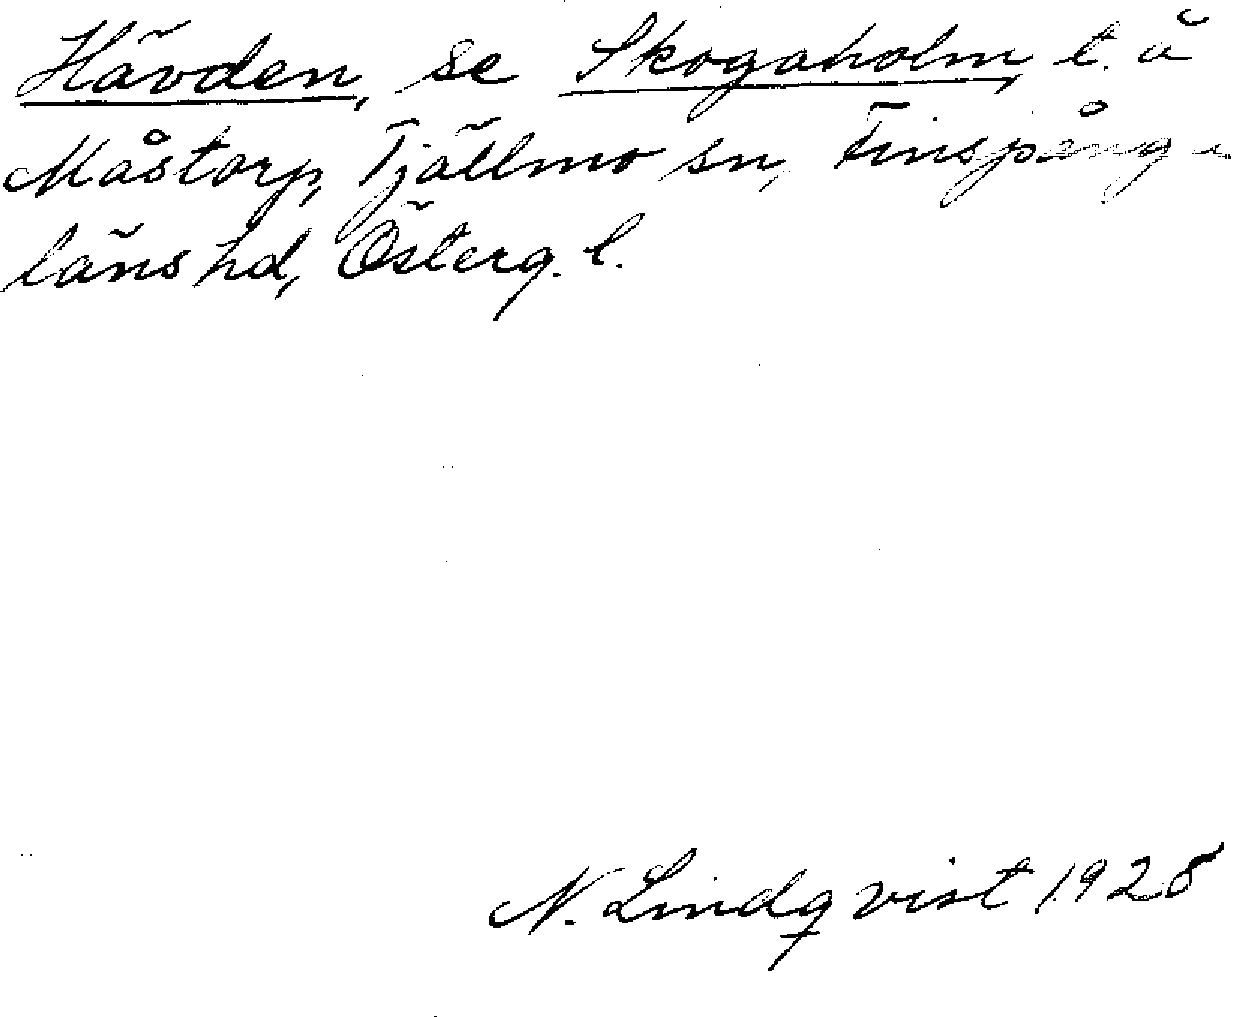 Hävden, se Skogaholm, t. å
Måstorp, Tjällmo sn, Finspånga
läns hd, Österg. l.
N. Lindqvist 1928